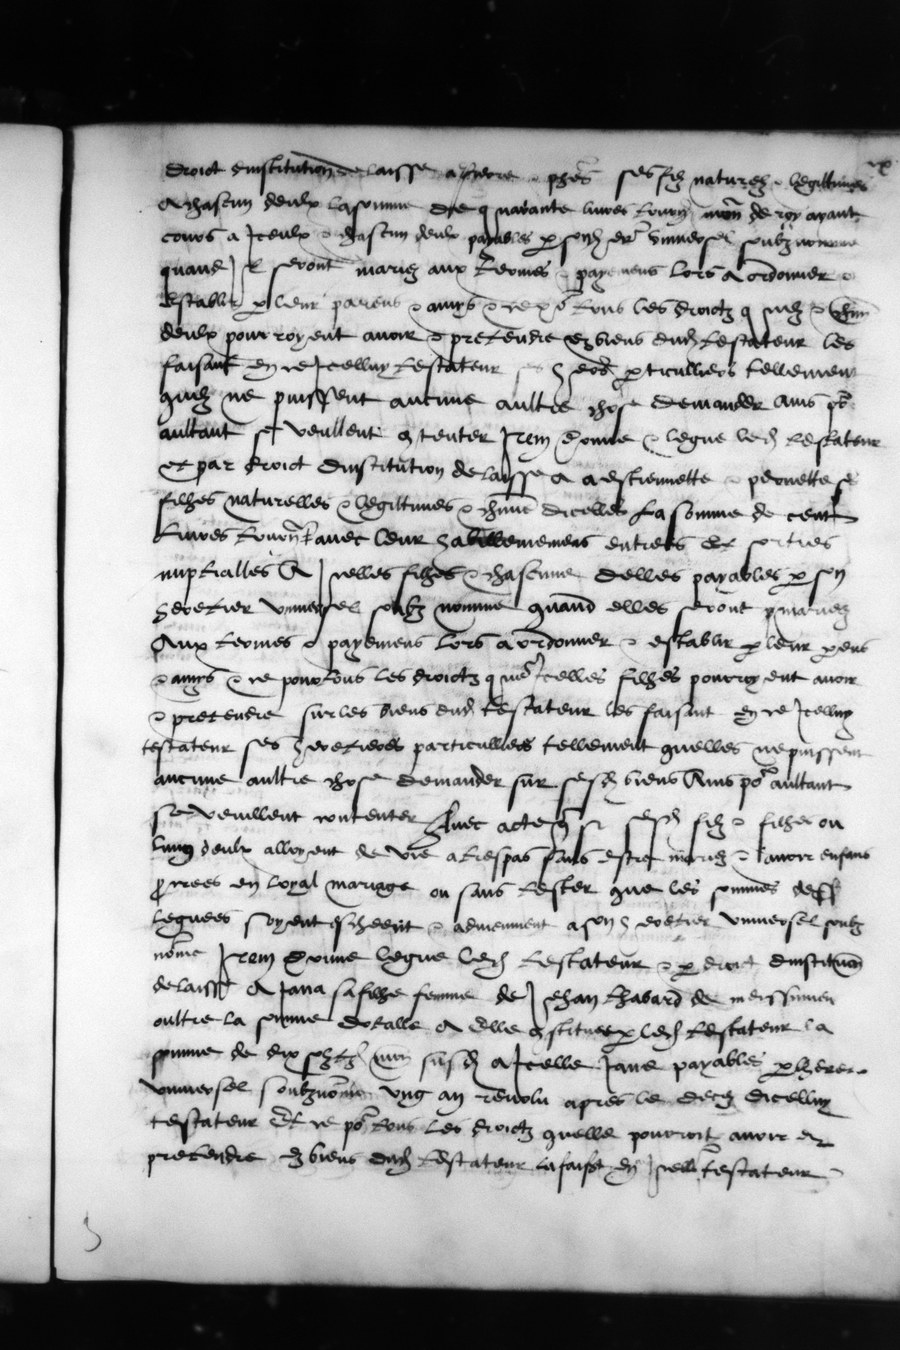 droict dinstitution delaisse a pierre phēs ses filz naturelz legittimes
a chascun deulx la somme de quarante livres tourn mon de roy ayantz
cours a Iceulx chascun deulx payables p sond her universel soubz nomme
quand Il seront mariez aux termes payemens lors a ordonner
establir p leur parens amys ce po tous les droictz quilz
deulx pourroyent avoir pretendre es biens dud testateur les
faisant en ce Icelluy testateur ses hered pticulliers tellement
quilz ne puissent aucune aultre chose demander ains po
aultant se veullent contenter Item donne legue led testateur
et par droict dinstitution delaisse a a estiennette pernette ses
filhes naturelles legittimes chune dicelles la somme de cent
livres tourn avec leur habillemens entrees et sorties
nuptialles a Icelles filhes chascune delles payables p son
heretier universel soubz nomme quand elles seront mariez
aux termes payemens lors a ordonner establir p leur pens
amys ce pour tous les droictz que Icelles filhes pourroyent avoir
pretendre sur les biens dud testateur les faisant en ce Icelluy
testateur ses heretieres particullieres tellement quelles ne puissent
aucune aultre chose demander sur sesd biens ains po aultant
se veullent contenter Avec acte q si sesd filz filhes ou
lung deulx alloyent de vie a trespas sans estre mariez avoir enfans
procrees en loyal mariage ou sans tester que les sommes dess
leguees soyent advienment a son heretier universel soubz
nōme Item donne legue led testateur p droict dinstitution
delaisse a Jana sa filhe femme de Jehan
oultre la somme dotalle a elle constituee p led testateur la
somme de dix mon susd a Icelle Jane payables p lherer
universel soubznōme ung an revolu apres le deces dicelluy
testateur Et ce po tous les droictz quelle pourroit avoir et
pretendre es biens dud testateur la faisant en Icelluy testateur